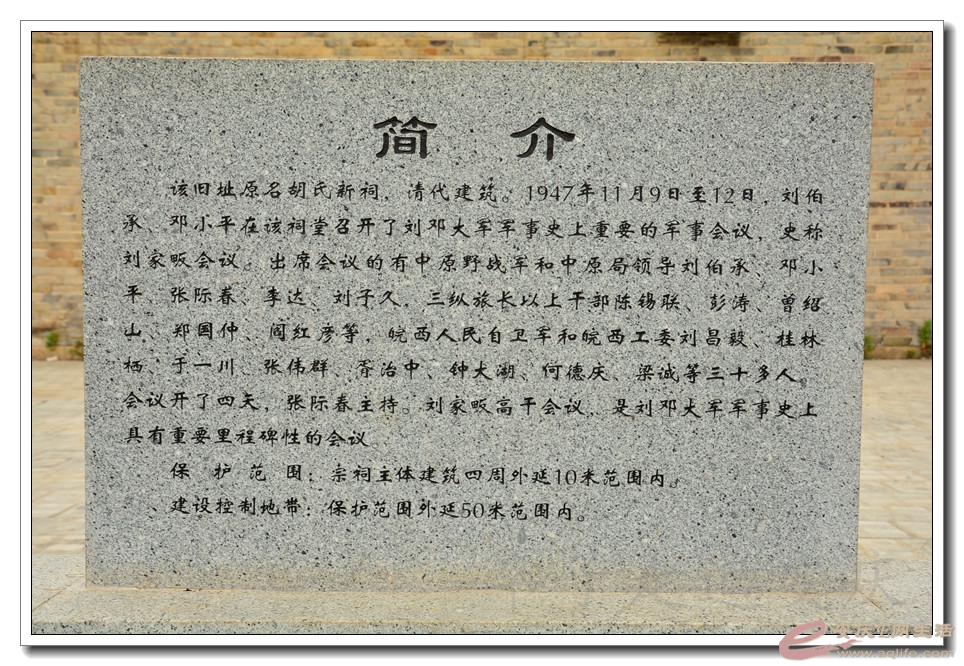 简 介
该旧址原名胡氏新祠，清代建筑。1947年11月9日至12日，刘伯
承、邓小平在该祠堂召开了刘邓大军军事史上重要的军事会议，史称
刘家畈会议。出席会议的有中原野战军和中原局领导刘伯承、邓小
平、张际春、李达、刘子久，三纵旅长以上干部陈锡联、彭涛、曾绍
山、郑国仲、阎红彦等，皖西人民自卫军和皖西工委刘昌毅、桂林
栖、于一川、张伟群、胥治中、钟大湖、何德庆、梁诚等三十多人。
会议开了四天，张际春主持。刘家畈高干会议，是刘邓大军军事史上
具有重要里程碑性的会议.
保 护 范 围：宗祠主体建筑四周外延10米范围内。
、建设控制地带：保护范围外延50米范围内。
www.aqlife.com